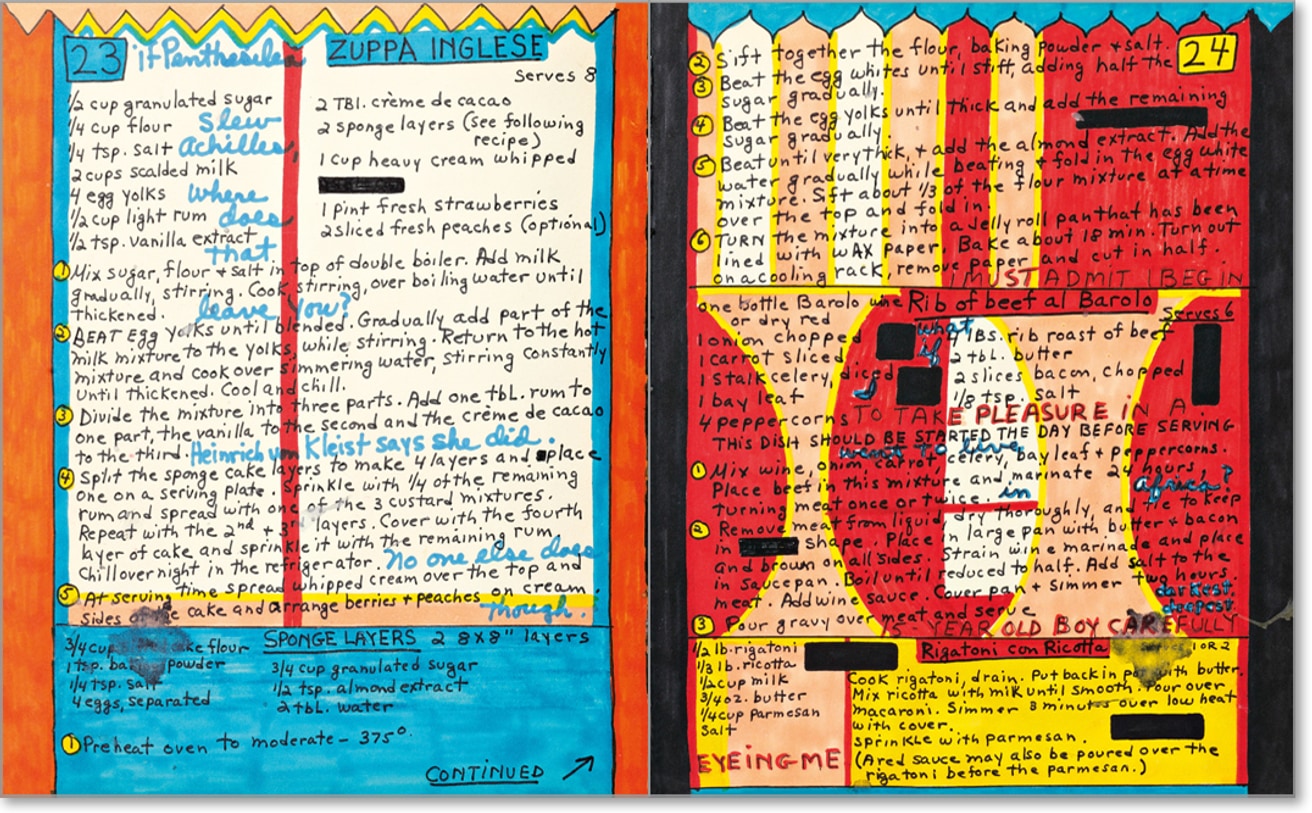 23
if Penthesilea
ZUPPA INGLESE
Serves 8
1/2 cup granulated sugar
1/4 cup flour
Slew
1/4 tsp. salt
Achilles,
2 cups scalded milk
4 egg yolks
where
1/2 cup light rum
does
1/2 tsp. vanilla extract
that
2 TBl. crème de cacao
2 sponge layers (see following
recipe)
1 cup heavy cream whipped
1 pint fresh strawberries
2 sliced fresh peaches (optional)
1 Mix sugar, flour + salt in top of double boiler. Add milk
gradually, stirring. Cook stirring, over boiling water until
thickened.
leave you?
2 BEAT Egg yolks until blended. Gradually add part of the
milk mixture to the yolks, while stirring. Return to the hot
mixture and cook over simmering water, stirring constantly
until thickened. Cool and chill.
3 Divide the mixture into three parts. Add one tbL. rum to
one part, the vanilla to the second and the crème de cacao
to the third.
Heinrich von Kleist says she did.
4 Split the sponge cake layers to make 4 layers and place
one on a serving plate. Sprinkle with 1/4 of the remaining
rum and spread with one of the 3 custard mixtures.
Repeat with the 2nd + 3rd layers. Cover with the fourth
layer of cake and sprinkle it with the remaining rum.
Chill overnight in the refrigerator.
No one else does
5 At serving time spread whipped cream over the top and
sides of the cake and arrange berries + peaches on cream.
though.
SPONGE LAYERS 2 8x8" layers
3/4 cup cake flour
1 tsp. baking powder
1/4 tsp. salt
4 eggs, separated
3/4 cup granulated sugar
1/2 tsp. almond extract
2 tbL. water
1 Preheat oven to moderate - 375°.
CONTINUED
24
2 Sift together the flour, baking powder + salt.
3 Beat the egg whites until stiff, adding half the
sugar gradually.
4 Beat the egg yolks until thick and add the remaining
sugar gradually.
5 Beat until very thick, + add the almond extract. Add the
water gradually while beating + fold in the egg white
mixture. Sift about 1/3 of the flour mixture at a time
over the top and fold in.
6 TURN the mixture into a Jelly roll pan that has been
lined with WAX paper. Bake about 18 min. Turn out
on a cooling rack, remove paper and cut in half.
I MUST ADMIT I BEGIN
one bottle Barolo wine
or dry red
1 onion chopped
1 carrot sliced
1 Stalk celery, diced
1 bay leaf
4 peppercorns
Rib of beef al Barolo
Serves 6
what
if
4 lBS. rib roast of beef
2 tbL. butter
2 slices bacon, chopped
1/8 tsp. salt
I
TO TAKE PLEASURE IN A
THIS DISH SHOULD BE STARTED THE DAY BEFORE SERVING
went to live
1 Mix wine, onion, carrot, celery, bay leaf + peppercorns.
Place beef in this mixture and marinate 24 hours,
turning meat once or twice.
in
Africa?
2 Remove meat from liquid, dry thoroughly, and tie to keep
in shape. Place in large pan with butter + bacon
and brown on all sides. Strain wine marinade and place
in saucepan. Boil until reduced to half. Add salt to the
meat. Add wine sauce. Cover pan + simmer two hours.
darkest,
deepest
3 Pour gravy over meat and serve
15-YEAR OLD BOY CAREFULLY
1/2 lb. rigatoni
1/3 lb. ricotta
1/2 cup milk
3/4 oz. butter
1/4 cup Parmesan
Salt
EYEING ME
Rigatoni con Ricotta
1 OR 2
Cook rigatoni, drain. Put back in pot with butter.
Mix ricotta with milk until smooth. Pour over
macaroni. Simmer 3 minutes over low heat
with cover.
Sprinkle with parmesan.
(A red sauce may also be poured over the
rigatoni before the parmesan.)